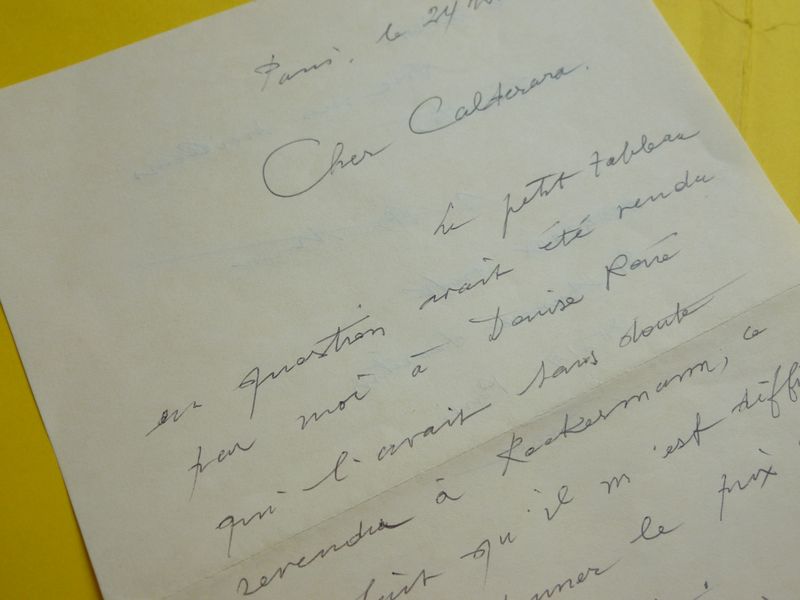 Paris, le 24
Cher Calderara.
Le petit tableau
en question avait été rendu
par moi à Denise René
qui l'avait sans doute
revendu à Rockermann, ce
qu'il m'est diffi
le prix